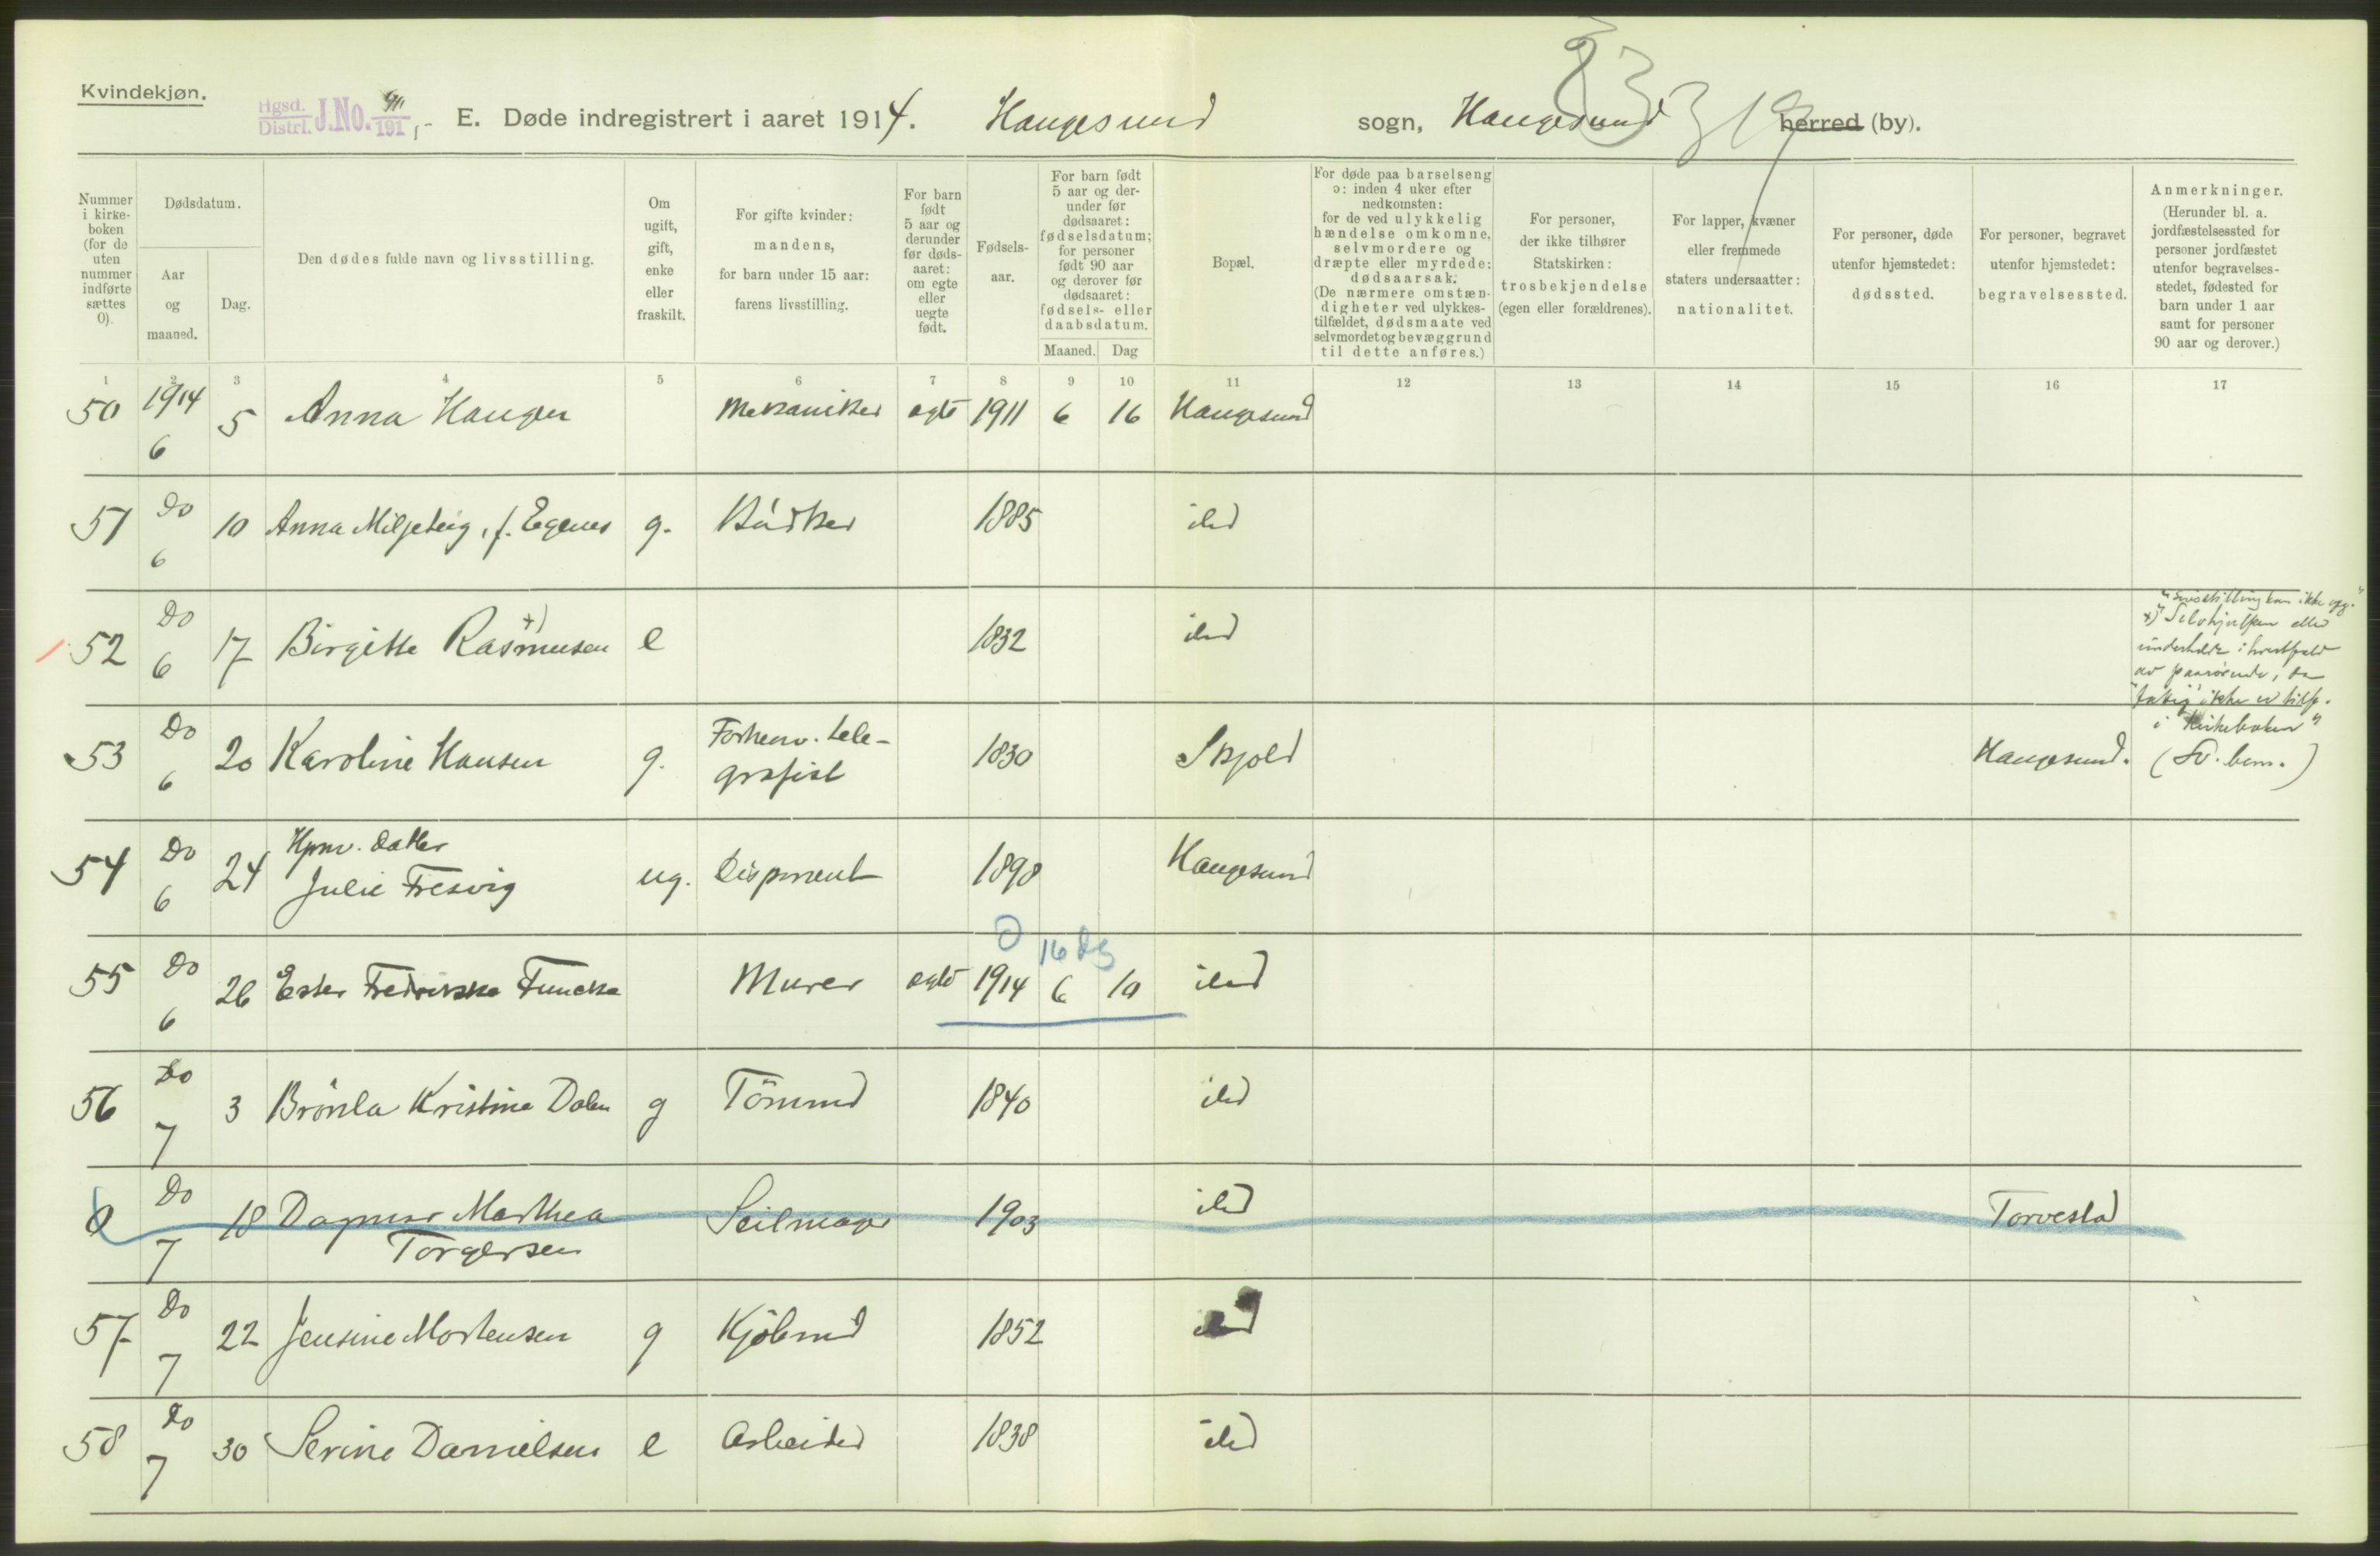 Kvindekjøn.
Hgsd. Distrl. J.No. 191
E. Døde indregistrert i aaret 1914. Haugesund sogn, Haugesund herred (by).
Nummer i kirke- boken (for de uten nummer indførte sættes 0).
Dødsdatum.
Aar og maaned.
Dag.
Den dødes fulde navn og livsstilling.
Om ugift, gift, enke eller fraskilt.
For gifte kvinder: mandens, for barn under 15 aar: farens livsstilling.
For barn født 5 aar og derunder før døds- aaret: om egte eller uegte født.
Fødsels- aar.
For barn født 5 aar og der- under før dødsaaret: fødselsdatum; for personer født 90 aar og derover før dødsaaret: fødsels- eller daabsdatum.
Maaned. Dag
Bopæl.
For døde paa barselseng ɔ: inden 4 uker efter nedkomsten: for de ved ulykkelig hændelse omkomne, selvmordere og dræpte eller myrdede: dødsaarsak. (De nærmere omstæn- digheter ved ulykkes- tilfældet, dødsmaate ved selvmordet og bevæggrund til dette anføres.)
For personer, der ikke tilhører Statskirken: trosbekjendelse (egen eller forældrenes).
For lapper, kvæner eller fremmede staters undersaatter: nationalitet.
For personer, døde utenfor hjemstedet: dødssted.
For personer, begravet utenfor hjemstedet: begravelsessted.
Anmerkninger. (Herunder bl. a. jordfæstelsessted for personer jordfæstet utenfor begravelses- stedet, fødested for barn under 1 aar samt for personer 90 aar og derover.)
1 2 3 4 5 6 7 8 9 10 11 12 13 14 15 16 17
50 1914 6 5 Anna Haugen Mekaniker egte 1911 6 16 Haugesund
51 Do 6 10 Anna Miljeteig, f. Egenes g. Bødker 1885 ibd
52 Do 6 17 Birgitte Rasmussen x) e 1832 ibd
53 Do 6 20 Karoline Hansen g. Forhenv. tele- grafist 1830 Skjold Haugesund. (Sv. bem.)
54 Do 6 24 Hjmv. datter Julie Tresvig ug. Disponent 1898 Haugesund
0 16 dg
55 Do 6 26 Ester Fredrikke Funcke Murer egte 1914 6 10 ibd
56 Do 7 3 Brönla Kristine Dalen g Tømmd 1840 ibd
0 Do 7 18 Dagmar Marthea Torgersen Seilmager 1903 ibd Torvestad
57 Do 7 22 Jensine Mortensen g Kjøbmd 1852 ibd
58 Do 7 30 Serine Danielsen e Arbeider 1838 ibd